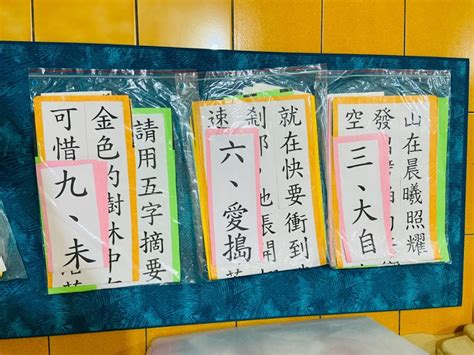 山在晨曦照耀
發
空
三、大自
就在快要衝到
剎那
速
六、愛搗
請用五字摘要
金色的樹林中
可惜
九、未